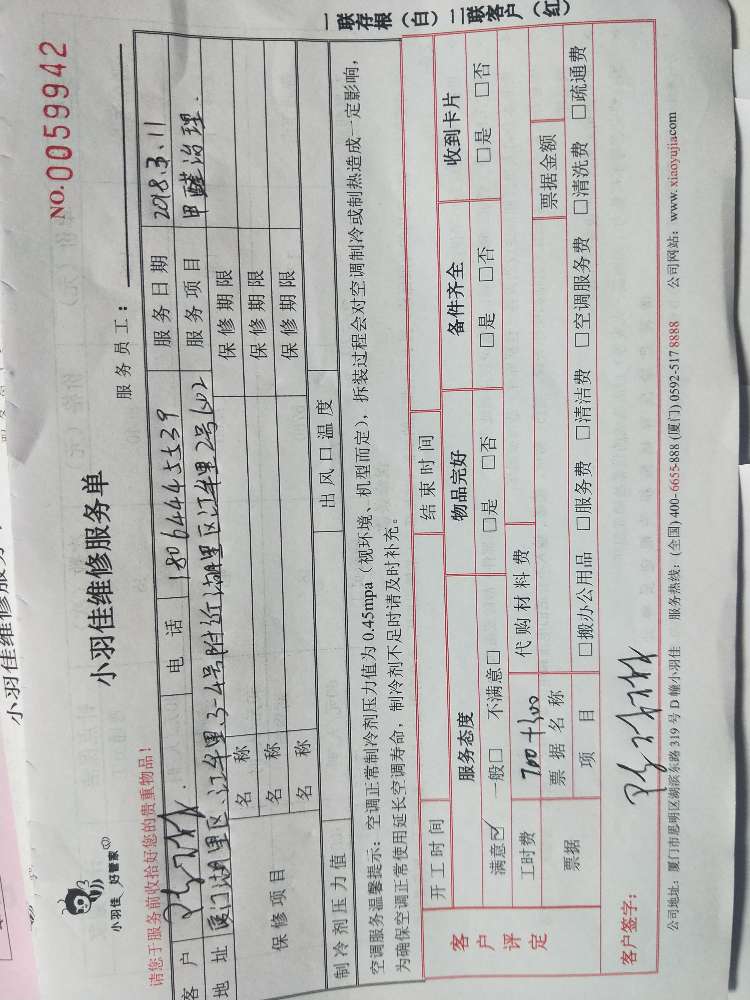 一联存根（白）二联客户（红）
小羽佳 好管家
小羽佳维修服务单
NO.0059942
请您于服务前收拾好您的贵重物品！
服务员工：
客户 电话 18064445539 服务日期 2018.3.11
地址 厦门湖里区江华里3-4号附近湖里区江华里2号602 服务项目 甲醛治理.
保修项目 名称 保修期限
名称 保修期限
名称 保修期限
制冷剂压力值 出风口温度
空调服务温馨提示：空调正常制冷剂压力值为0.45mpa（视环境、机型而定），拆装过程会对空调制冷或制热造成一定影响，
为确保空调正常使用延长空调寿命，制冷剂不足时请及时补充。
客户评定 开工时间 结束时间
服务态度 物品完好 备件齐全 收到卡片
满意☑ 一般□ 不满意□ □是 □否 □是 □否 □是 □否
工时费 700+300 代购材料费
票据 票据名称 票据金额
项目 □搬办公用品 □服务费 □清洁费 □空调服务费 □清洗费 □疏通费
客户签字：
公司地址：厦门市思明区湖滨东路319号D幢小羽佳 服务热线：(全国) 400-6655-888 (厦门) 0592-517 8888 公司网站：www.xiaoyujia.com